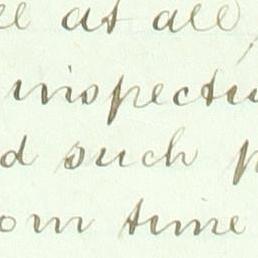 at all,
inspecti
d such p
om time